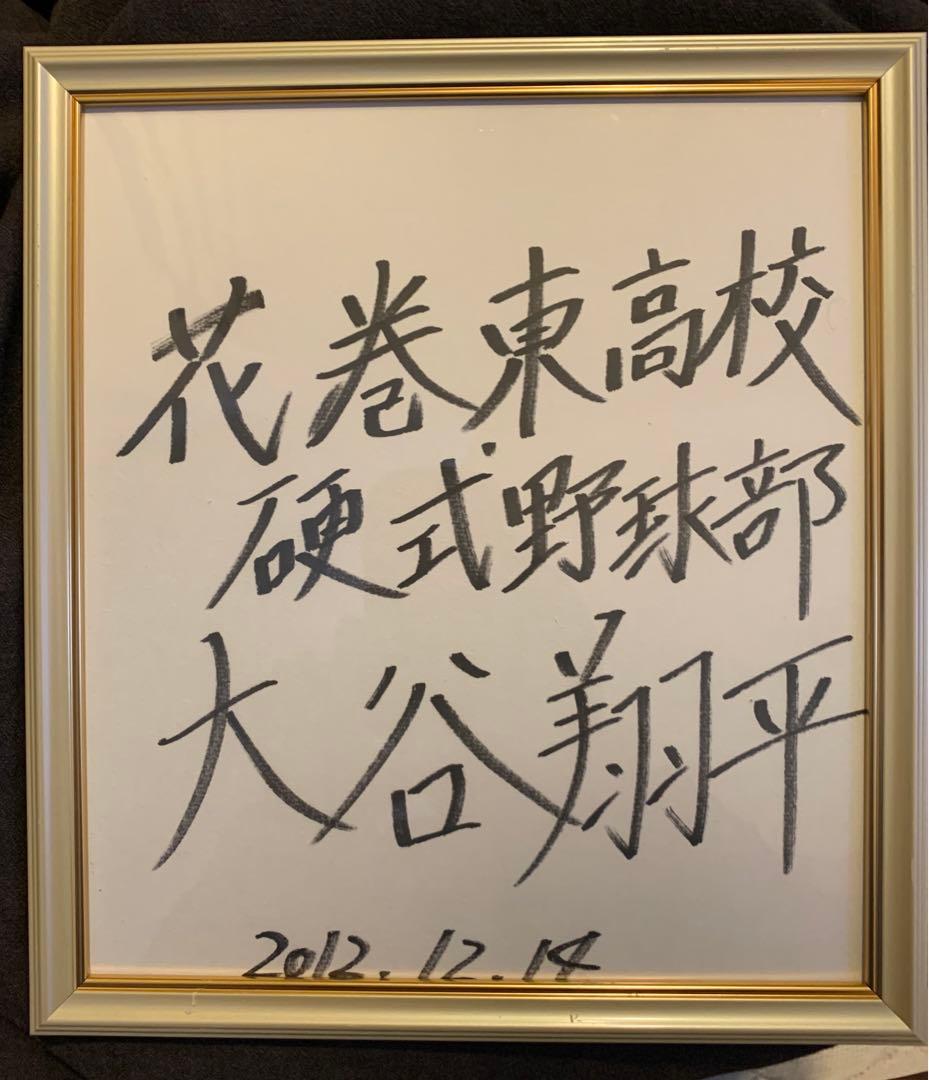 花巻東高校
硬式野球部
大谷翔平
2012.12.14